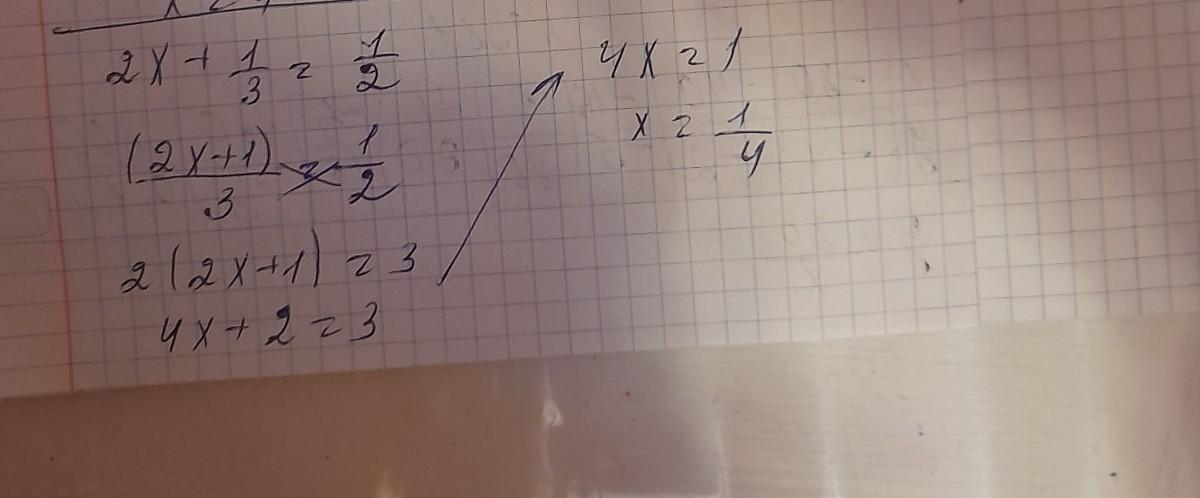 2x + 1/3 = 1/2
(2x+1)/3 = 1/2
2(2x+1) = 3
4x + 2 = 3
4x = 1
x = 1/4